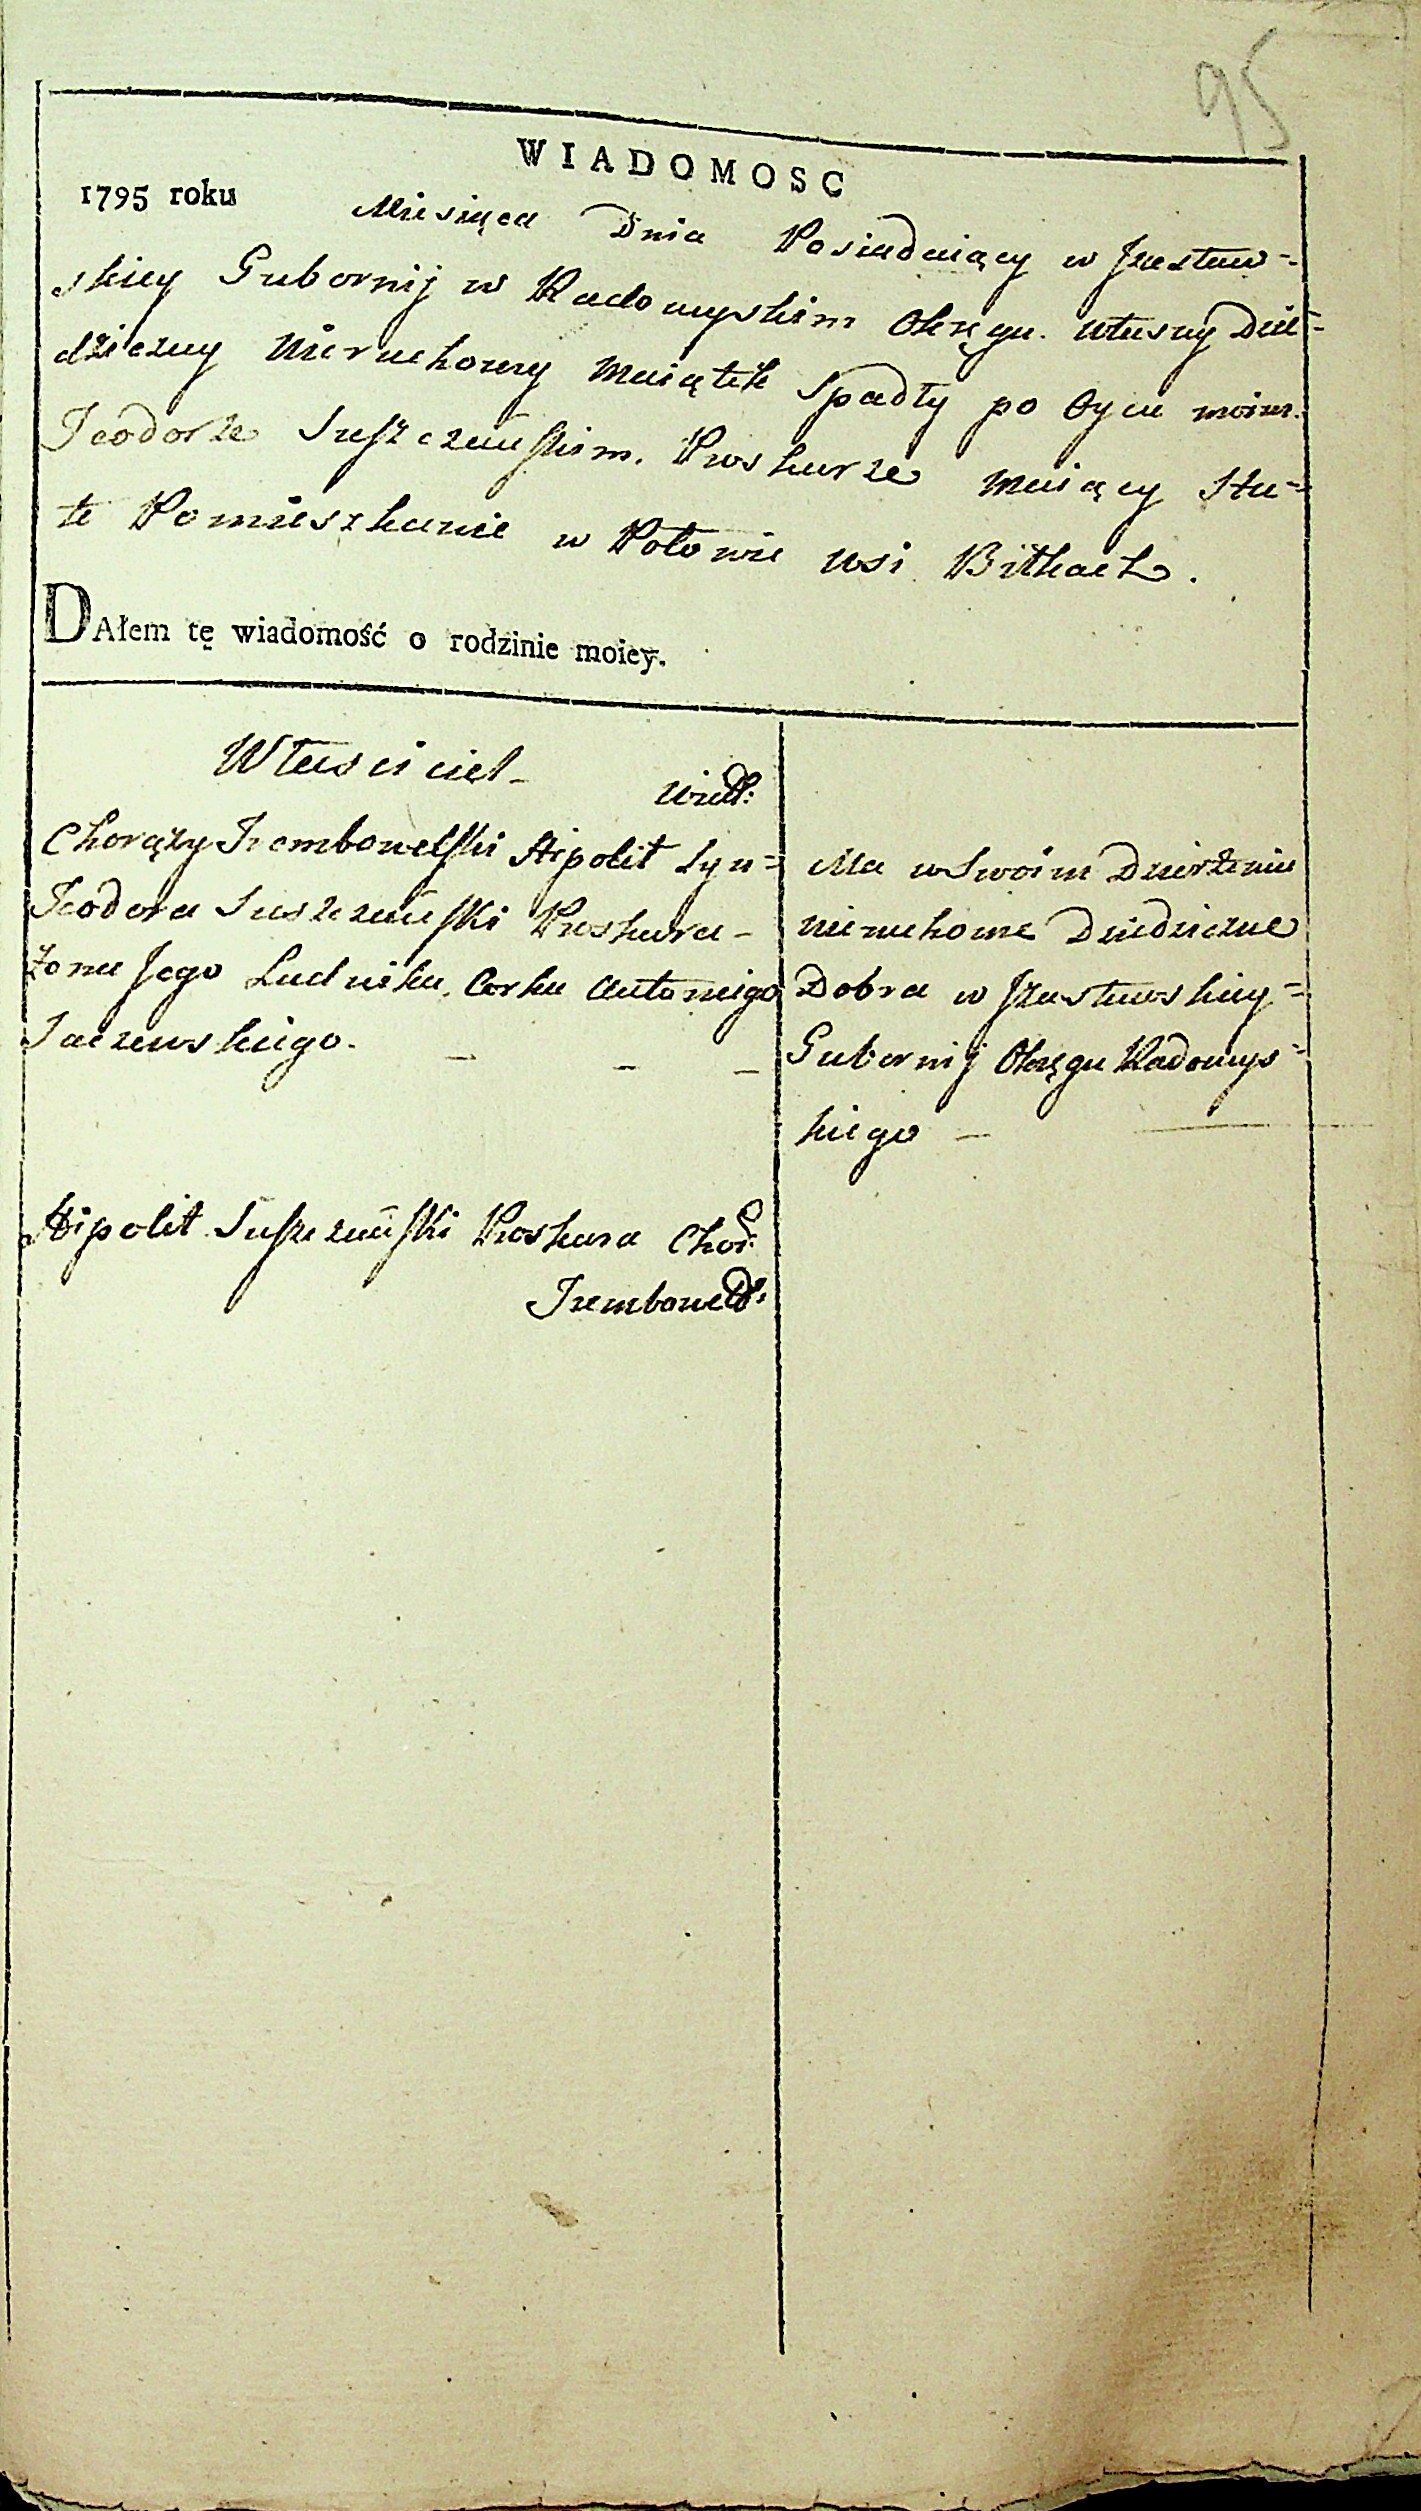 95
WIADOMOSC
1795 roku Miesiąca Dnia Posiadaiący w Jzasław=
skiey Gubernij w Radomyskim Okręgu. własny Dzie=
dziczny Nieruchomy Maiątek Spadły po Oycu moim.
Teodorze Suszczeńskim. Proskurze Maiący Sta=
łe Pomieszkanie w Połowie wsi Bitkach.
DAłem tę wiadomość o rodzinie moiey.
Właściciel
Chorąży Trembowelski Hipolit Syn=
Teodora Suszczeński Proskura -
Żona Jego Ludwika, Corka Antoniego
Jaczewskiego. - - -
Hipolit Suszczeński Proskura Chor:
Trembowels:
Ma w Swoim Dzierżeniu
nieruchome Dziedziczne
Dobra w Jzasławskiey=
Gubernij Okręgu Radomys=
kiego -